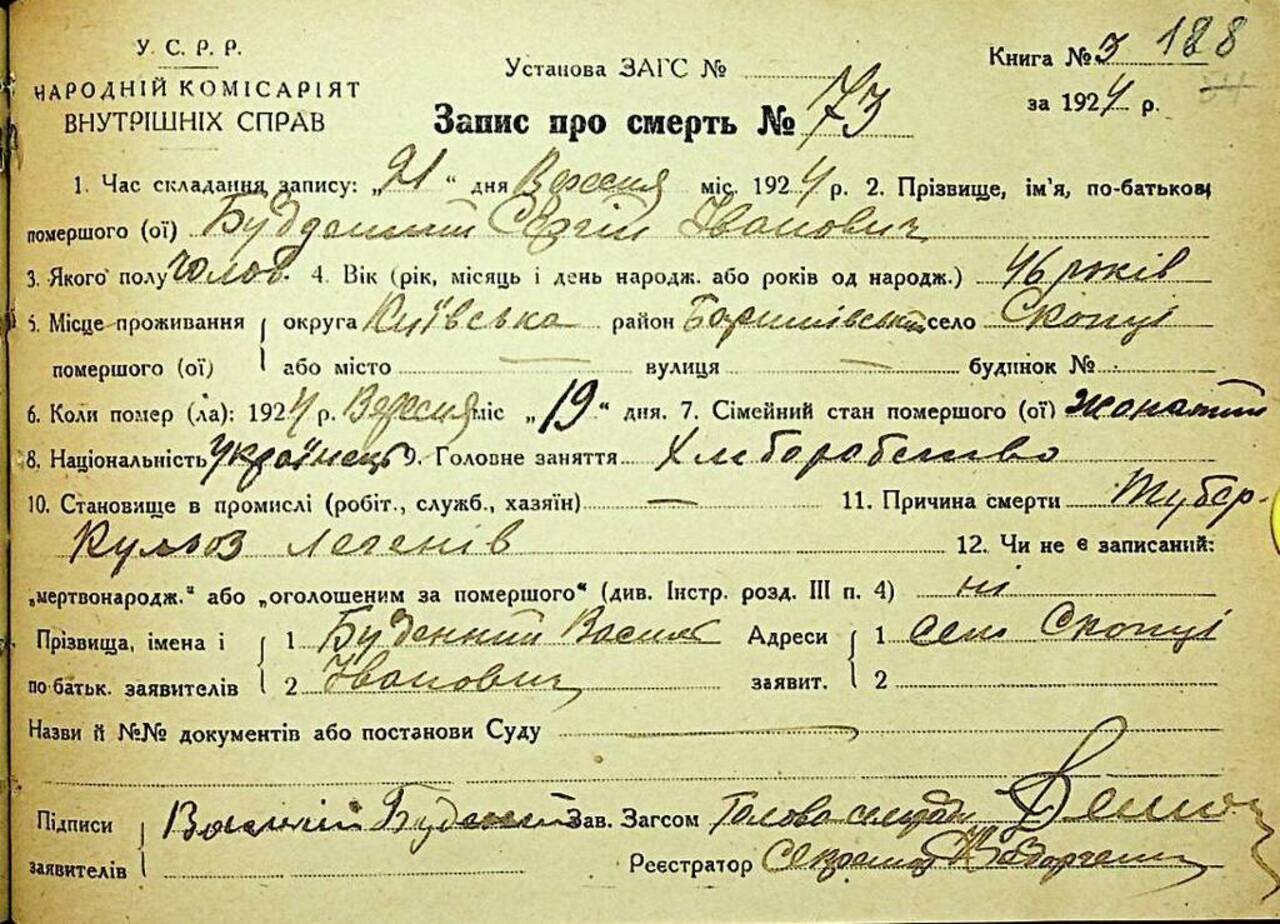 У. С. Р. Р.
НАРОДНІЙ КОМІСАРІЯТ
ВНУТРІШНІХ СПРАВ
Установа ЗАГС №
Книга № 3 188
за 1924 р.
Запис про смерть № 73
1. Час складання запису: „21“ дня Вересня міс. 1924 р. 2. Прізвище, ім'я, по-батькові
помершого (ої) Буденний Сергій Іванович
3. Якого полу чолов. 4. Вік (рік, місяць і день народж. або років од народж.) 46 років
5. Місце проживання округа Київська район Баришівський село Скопці
помершого (ої) або місто — вулиця — будинок №
6. Коли помер (ла): 1924 р. Вересня міс „19“ дня. 7. Сімейний стан помершого (ої) жонатий
8. Національність Українець 9. Головне заняття Хліборобство
10. Становище в промислі (робіт., служб., хазяїн) — 11. Причина смерти Тубер-
кульоз легенів 12. Чи не є записаний:
„мертвонародж.“ або „оголошеним за помершого“ (див. Інстр. розд. III п. 4) ні
Прізвища, імена і 1 Буденний Василь Адреси 1 село Скопці
по батьк. заявителів 2 Іванович заявит. 2
Назви й №№ документів або постанови Суду —
Підписи Василій Буденний Зав. Загсом Голова сельради
заявителів Реєстратор Секретар